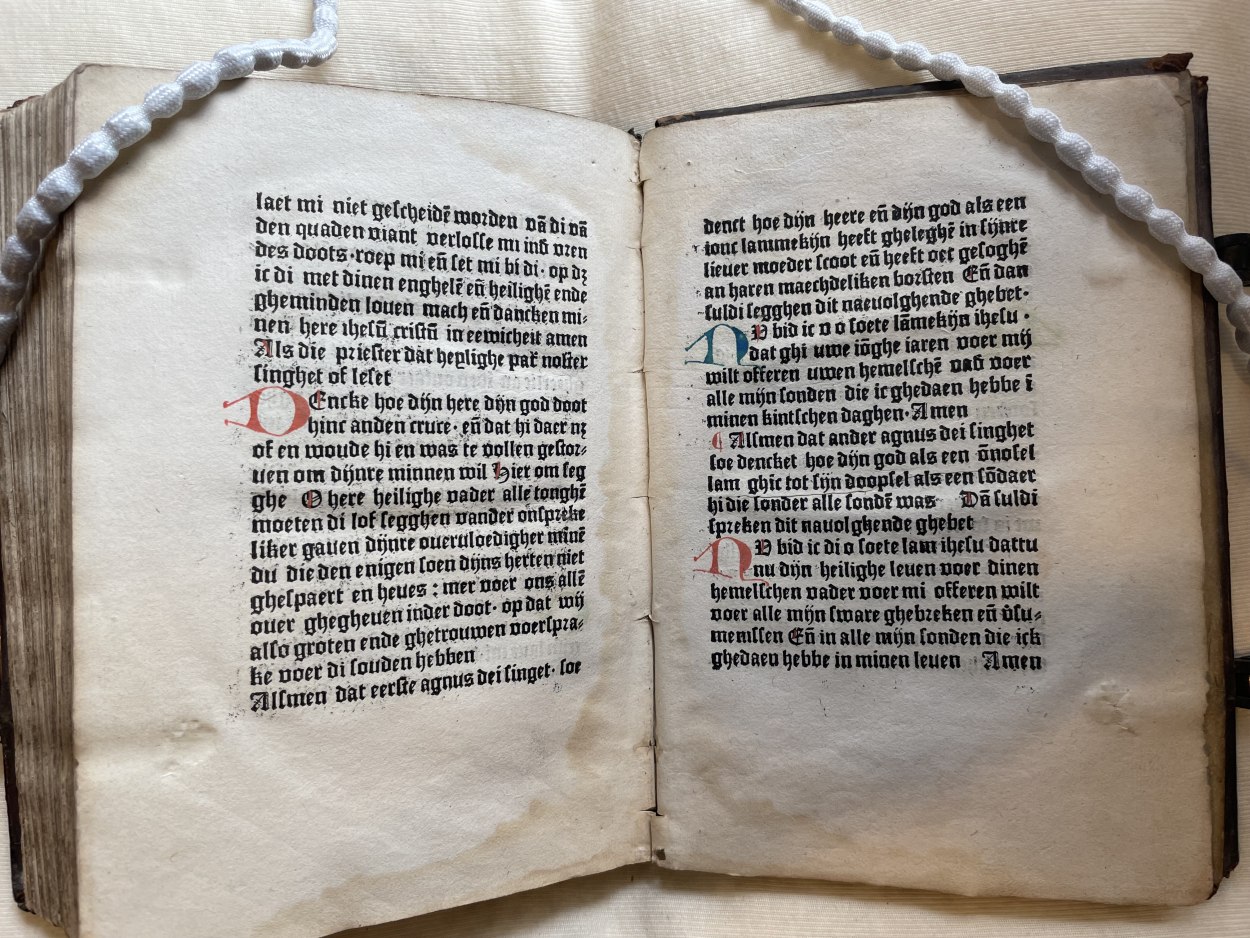 laet mi niet gescheidē worden vā di vā
den quaden viant verlosse mi inđ vren
des doots· roep mi eñ set mi bi di· op dꝫ
ic di met dinen enghelē eñ heilighē ende
gheminden louen mach eñ dancken mi-
nen here ihesū cristū in eewicheit amen
Als die priester dat heylighe paꝛ noster
singhet of leset
DEncke hoe dijn here dijn god doot
hinc anden cruce· eñ dat hi daer nꝫ
of en woude hi en was te vollen gestor-
uen om dijnre minnen wil Hier om seg
ghe O here heilighe vader alle tonghē
moeten di lof segghen vander onspreke
liker gauen dijnre oueruloedigher minē
du die den enigen soen dijns herten niet
ghespaert en heues : mer voer ons allē
ouer ghegheuen inder doot· op dat wij
also groten ende ghetrouwen voerspra-
ke voer di souden hebben
Alsmen dat eerste agnus dei singet· soe
denct hoe dijn heere eñ dijn god als een
ionc lammekijn heeft gheleghē in sijnre
lieuer moeder scoot eñ heeft oec gesoghē
an haren maechdeliken borsten Eñ dan
suldi segghen dit naeuolghende ghebet·
NV bid ic v o soete lāmekijn ihesu ·
dat ghi uwe iōghe iaren voer mij
wilt offeren uwen hemelschē vađ voer
alle mijn sonden die ic ghedaen hebbe ī
minen kintschen daghen· Amen
¶ Alsmen dat ander agnus dei singhet
soe dencket hoe dijn god als een ōnosel
lam ghīc tot sijn doopsel als een sōdaer
hi die sonder alle sondē was Dā suldi
spreken dit nauolghende ghebet
NV bid ic di o soete lam ihesu dattu
nu dijn heilighe leuen voer dinen
hemelschen vader voer mi offeren wilt
voer alle mijn sware ghebreken eñ v̄su-
menissen Eñ in alle mijn sonden die ick
ghedaen hebbe in minen leuen Amen